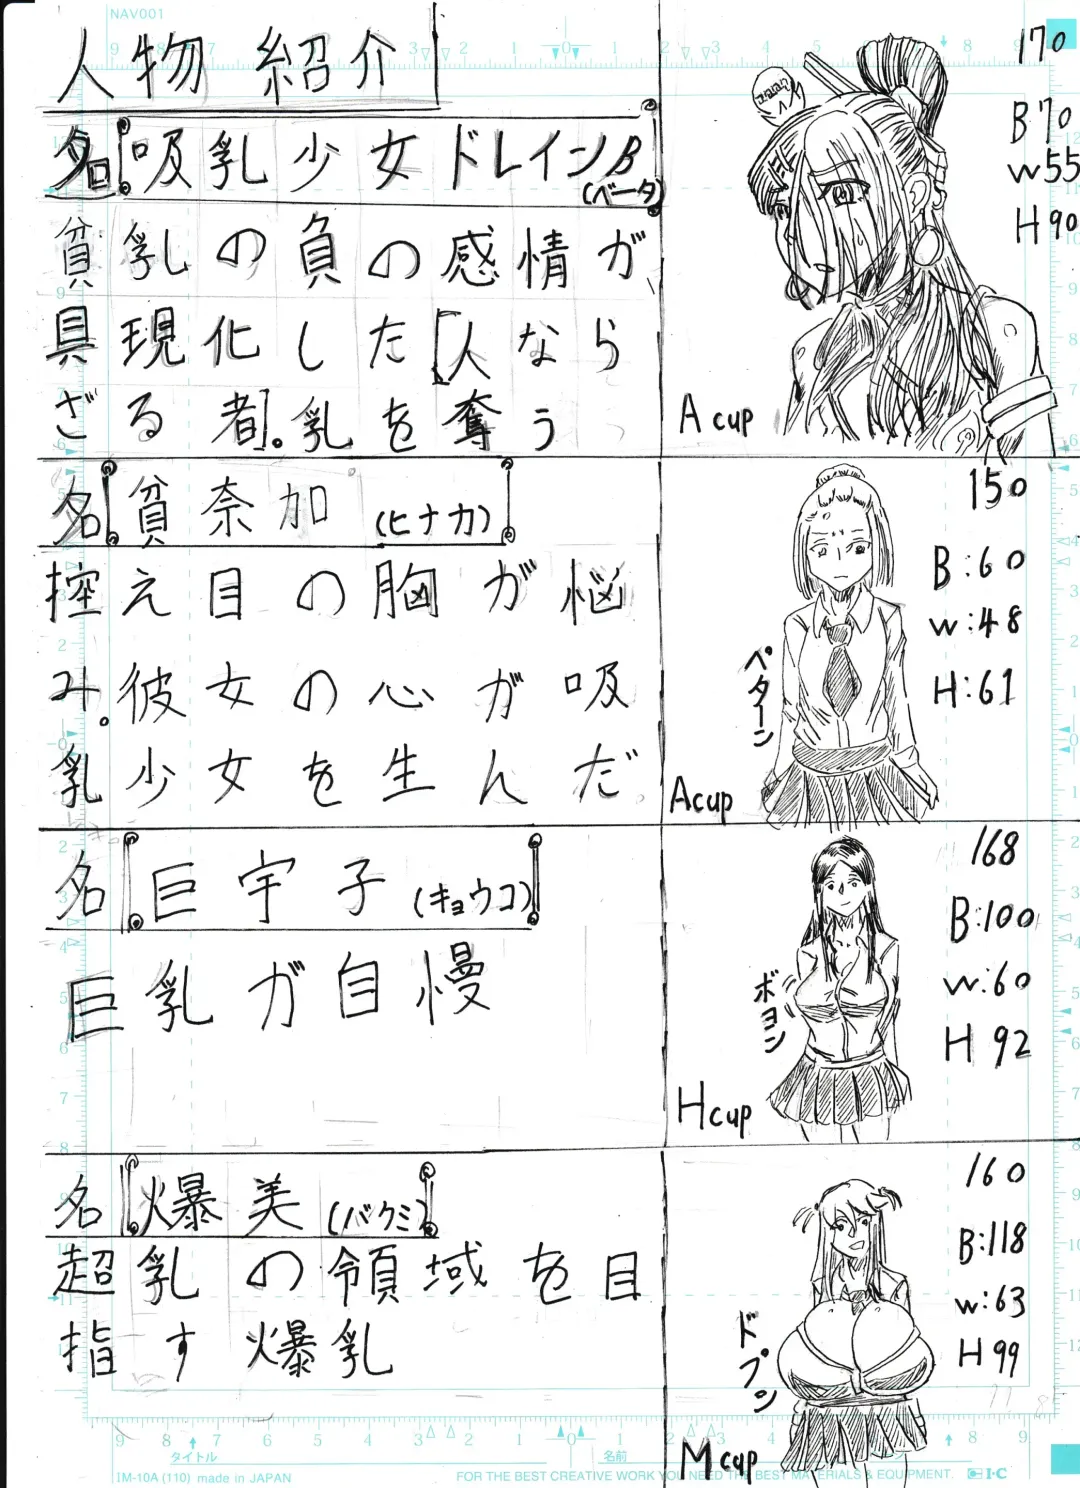 NAV001
人物紹介
名 吸乳少女ドレインB
(ベータ)
貧乳の負の感情が
具現化した[人なら
ざる者]。乳を奪う
170
B70
W55
H90
A cup
名 貧奈加 (ヒナカ)
控え目の胸が悩
み。彼女の心が吸
乳少女を生んだ
150
B:60
W:48
H:61
ペターン
A cup
名 巨宇子 (キョウコ)
巨乳が自慢
168
B:100
W:60
H 92
ボヨン
H cup
名 爆美 (バクミ)
超乳の領域を目
指す爆乳
160
B:118
W:63
H 99
ドプン
M cup
タイトル
名前
IM-10A (110) made in JAPAN
FOR THE BEST CREATIVE WORK YOU NEED THE BEST MATERIALS & EQUIPMENT.
I·C